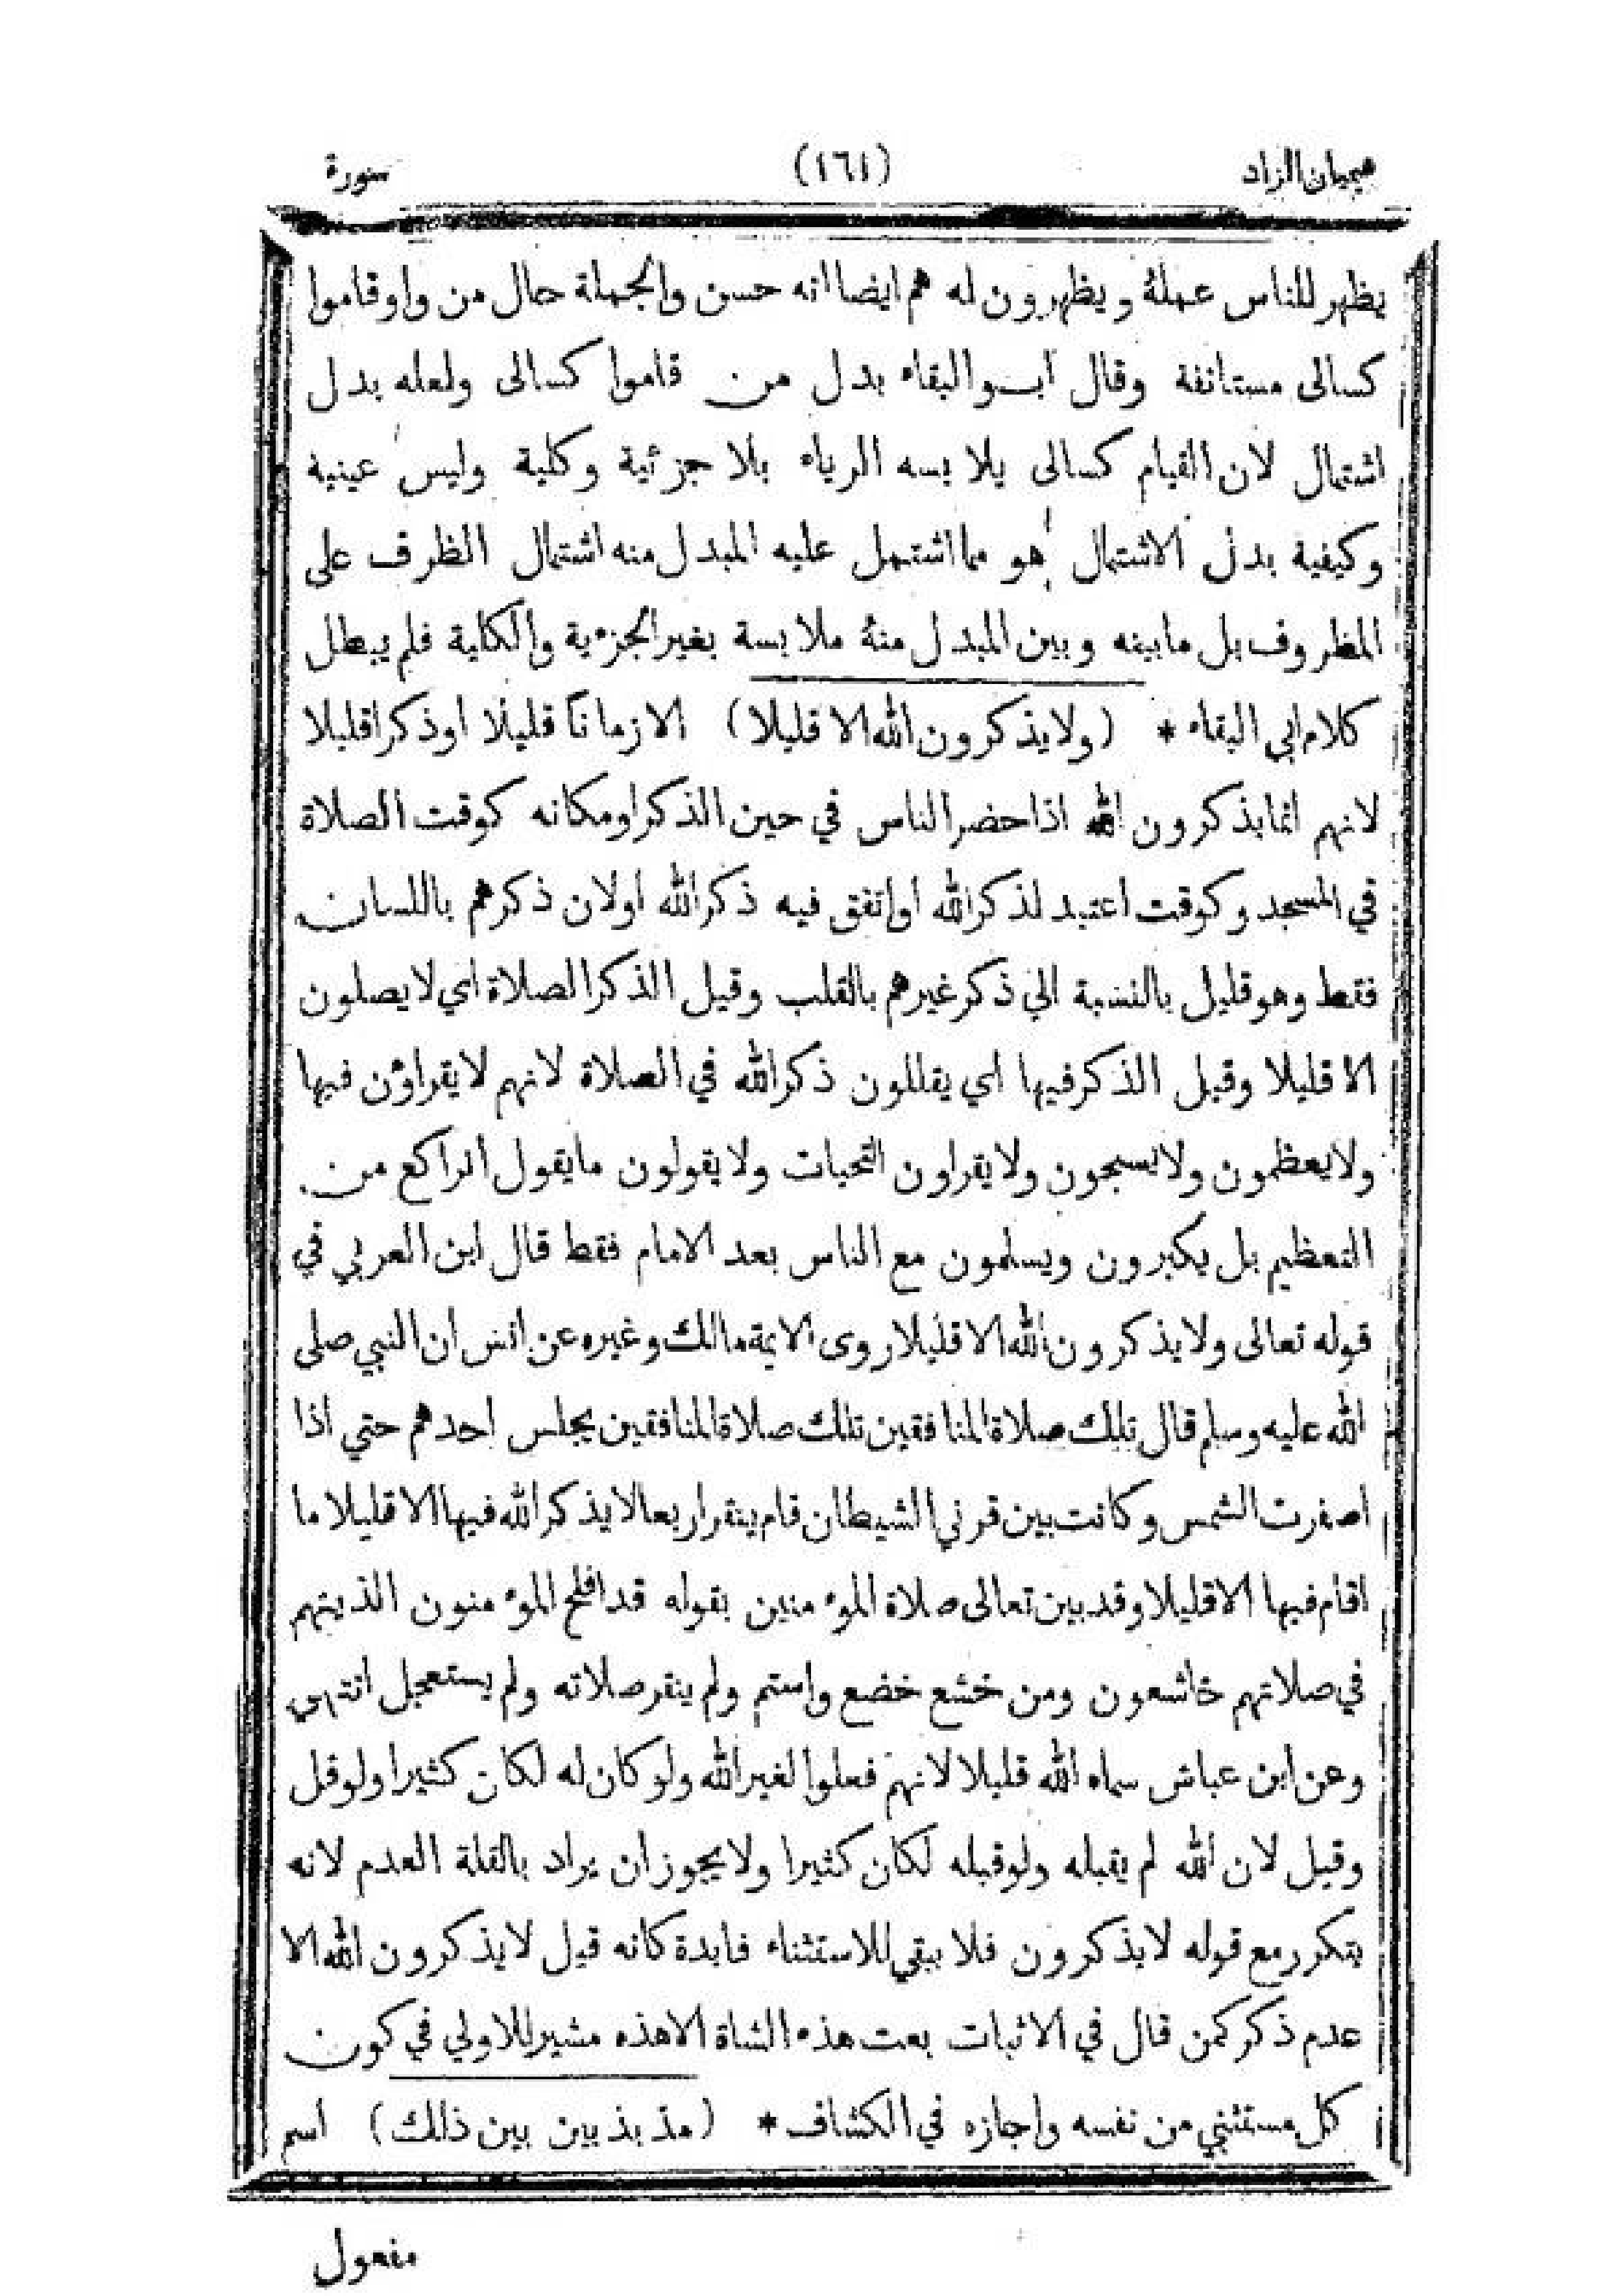 هيميان الزاد (١٦١) سورة
يظهر للناس عمله ويظهرون له هم ايضا انه حسن والجملة حال من واو قاموا
كسالى مستانفة وقال ابو البقاء بدل من قاموا كسالى ولعله بدل
اشتمال لان القيام كسالى يلابسه الرياء بلا جزئية وكلية وليس عينيه
وكيفية بدل الاشتمال هو مما اشتمل عليه المبدل منه اشتمال الظرف على
المظروف بل ما بينه وبين المبدل منه ملابسة بغير الجزءية والكلية فلم يبطل
كلام ابي البقاء * (ولا يذكرون الله الا قليلا) الا زمانا قليلا او ذكرا قليلا
لانهم انما يذكرون الله اذا حضر الناس في حين الذكر او مكانه كوقت الصلاة
في المسجد وكوقت اعتيد لذكر الله او اتفق فيه ذكر الله او لان ذكرهم باللسان
فقط وهو قليل بالنسبة الي ذكر غيرهم بالقلب وقيل الذكر الصلاة اي لا يصلون
الا قليلا وقيل الذكر فيها اي يقللون ذكر الله في الصلاة لانهم لا يقراؤن فيها
ولا يعظمون ولا يسبحون ولا يقراون التحيات ولا يقولون ما يقول الراكع من
التعظيم بل يكبرون ويسلمون مع الناس بعد الامام فقط قال ابن العربي في
قوله تعالى ولا يذكرون الله الا قليلا روى الايمة مالك وغيره عن انس ان النبي صلى
الله عليه وسلم قال تلك صلاة المنافقين تلك صلاة المنافقين يجلس احدهم حتي اذا
اصفرت الشمس وكانت بين قرني الشيطان قام ينقر اربعا لا يذكر الله فيها الا قليلا ما
اقام فيها الا قليلا وقد بين تعالى صلاة الموءمنين بقوله قد افلح الموءمنون الذينهم
في صلاتهم خاشعون ومن خشع خضع واستم ولم ينقر صلاته ولم يستعجل انتهى
وعن ابن عباس سماه الله قليلا لانهم فعلوا لغير الله ولو كان له لكان كثيرا ولو قل
وقيل لان الله لم يقبله ولو قبله لكان كثيرا ولا يجوز ان يراد بالقلة العدم لانه
يتكرر مع قوله لا يذكرون فلا يبقي للاستثناء فايدة كانه قيل لا يذكرون الله الا
عدم ذكر كمن قال في الاثبات بعت هذه الشاة الا هذه مشير للاولي في كون
كل مستثني من نفسه واجازه في الكشاف * (مذبذبين بين ذلك) اسم
مفعول